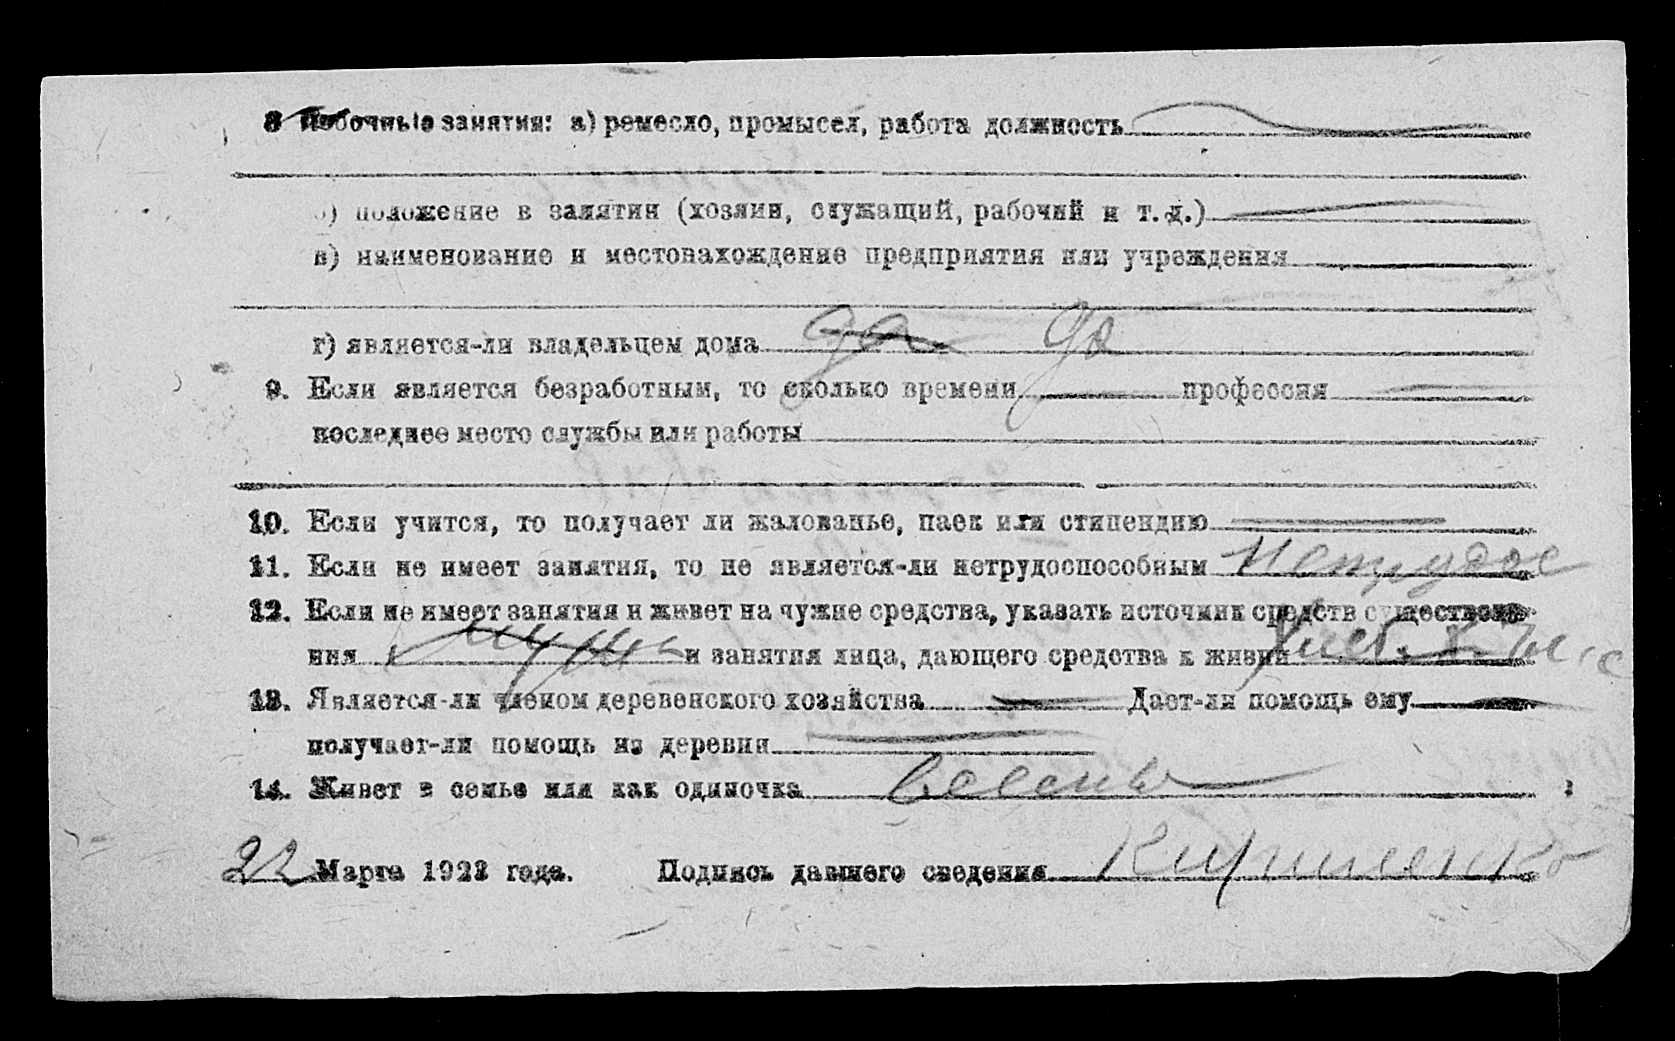 8 Побочные занятия: а) ремесло, промысел, работа должность
б) положение в занятии (хозяин, служащий, рабочий и т. д.)
в) наименование и местонахождение предприятия или учреждения
г) является-ли владельцем дома да да
9. Если является безработным, то сколько времени профессия
последнее место службы или работы
10. Если учится, то получает ли жалованье, паек или стипендию
11. Если не имеет занятия, то не является-ли нетрудоспособным Нетрудос
12. Если не имеет занятия и живет на чужие средства, указать источник средств существова-
ния и занятия лица, дающего средства к жизни
13. Является-ли членом деревенского хозяйства Дает-ли помощь ему
получает-ли помощь из деревни
14. Живет в семье или как одиночка
22 Марта 1923 года. Подпись давшего сведения